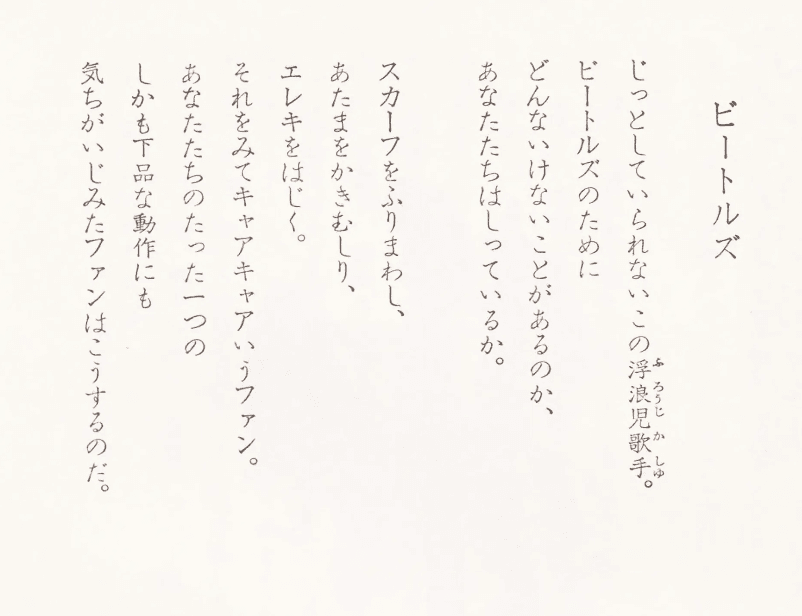 ビートルズ
じっとしていられないこの浮浪児歌手。
ふろうじかしゅ
ビートルズのために
どんないけないことがあるのか、
あなたたちはしっているか。
スカーフをふりまわし、
あたまをかきむしり、
エレキをはじく。
それをみてキャアキャアいうファン。
あなたたちのたった一つの
しかも下品な動作にも
気ちがいじみたファンはこうするのだ。